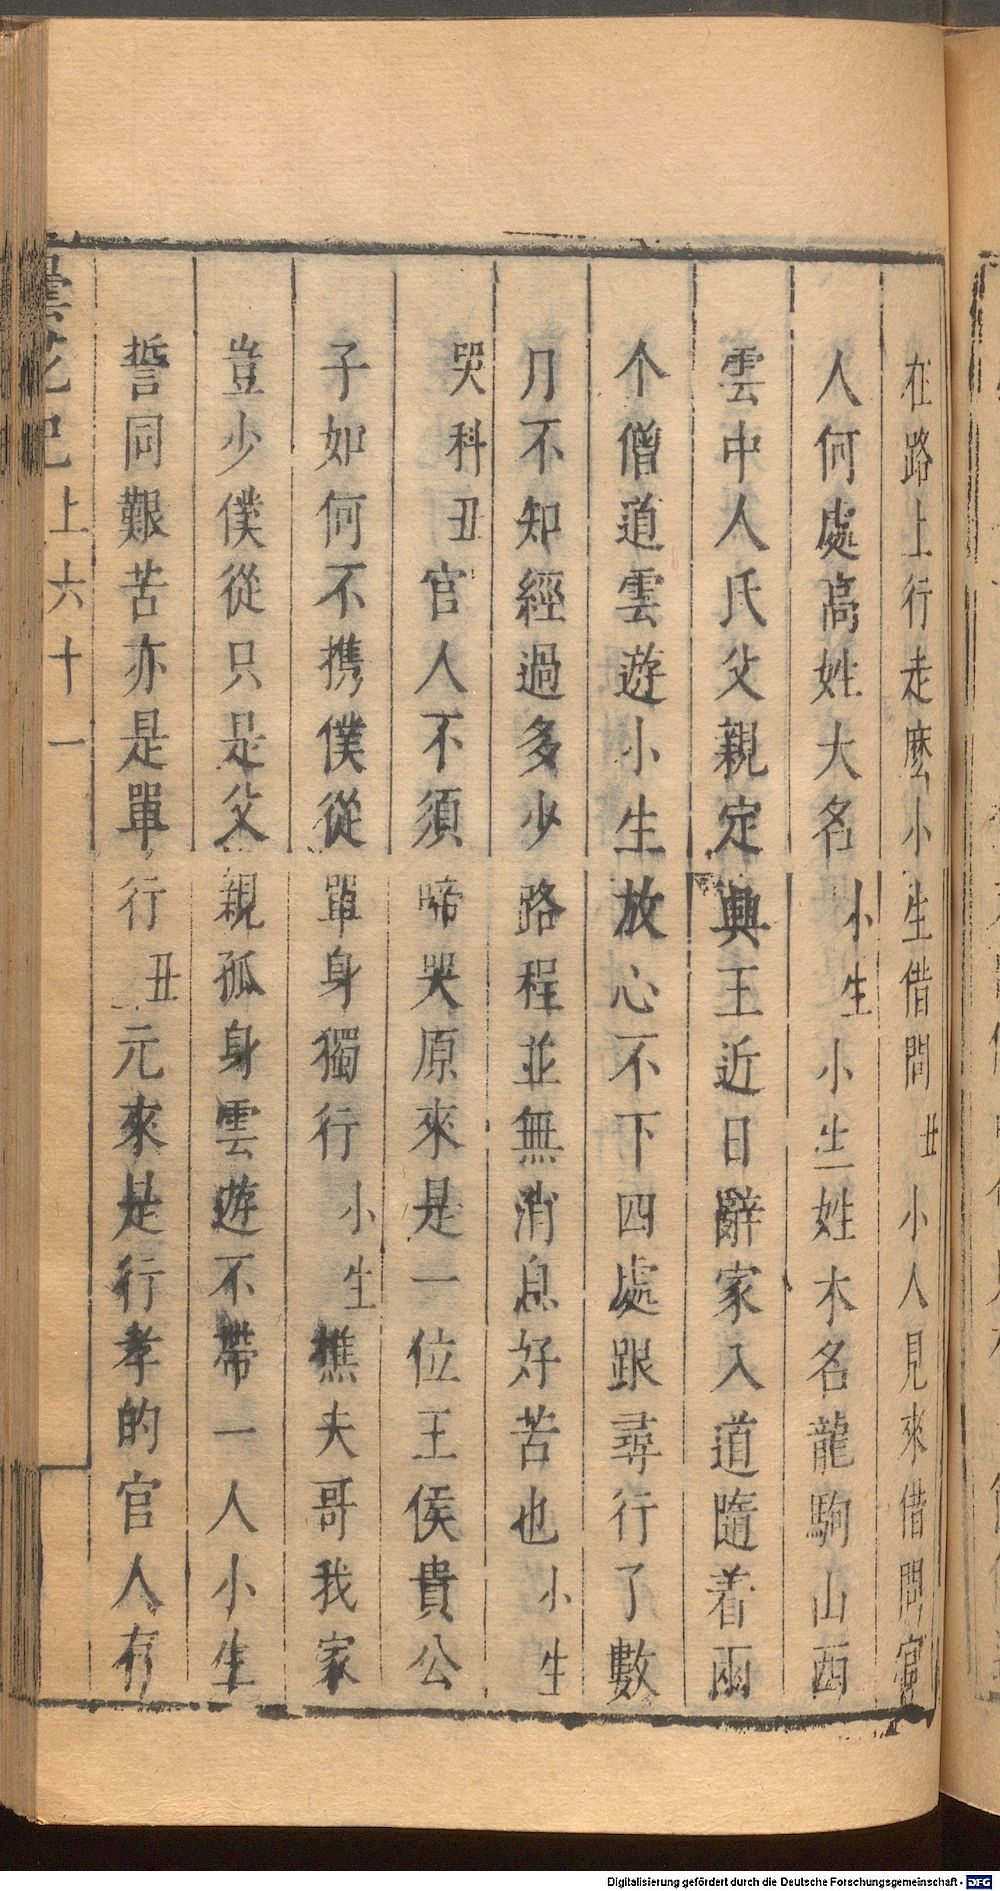 在路上行走麽小生借問丑小人見來借問官
人何處高姓大名小生小生姓木名龍駒山西
雲中人氏父親定興王近日辭家入道隨着兩
个僧道雲遊小生放心不下四處跟尋行了數
月不知經過多少路程並無消息好苦也小生
哭科丑官人不須啼哭原來是一位王侯貴公
子如何不携僕從單身獨行小生樵夫哥我家
豈少僕從只是父親孤身雲遊不帶一人小生
誓同艱苦亦是單行丑元來是行孝的官人有
曇花記上六十一
Digitalisierung gefördert durch die Deutsche Forschungsgemeinschaft - DFG